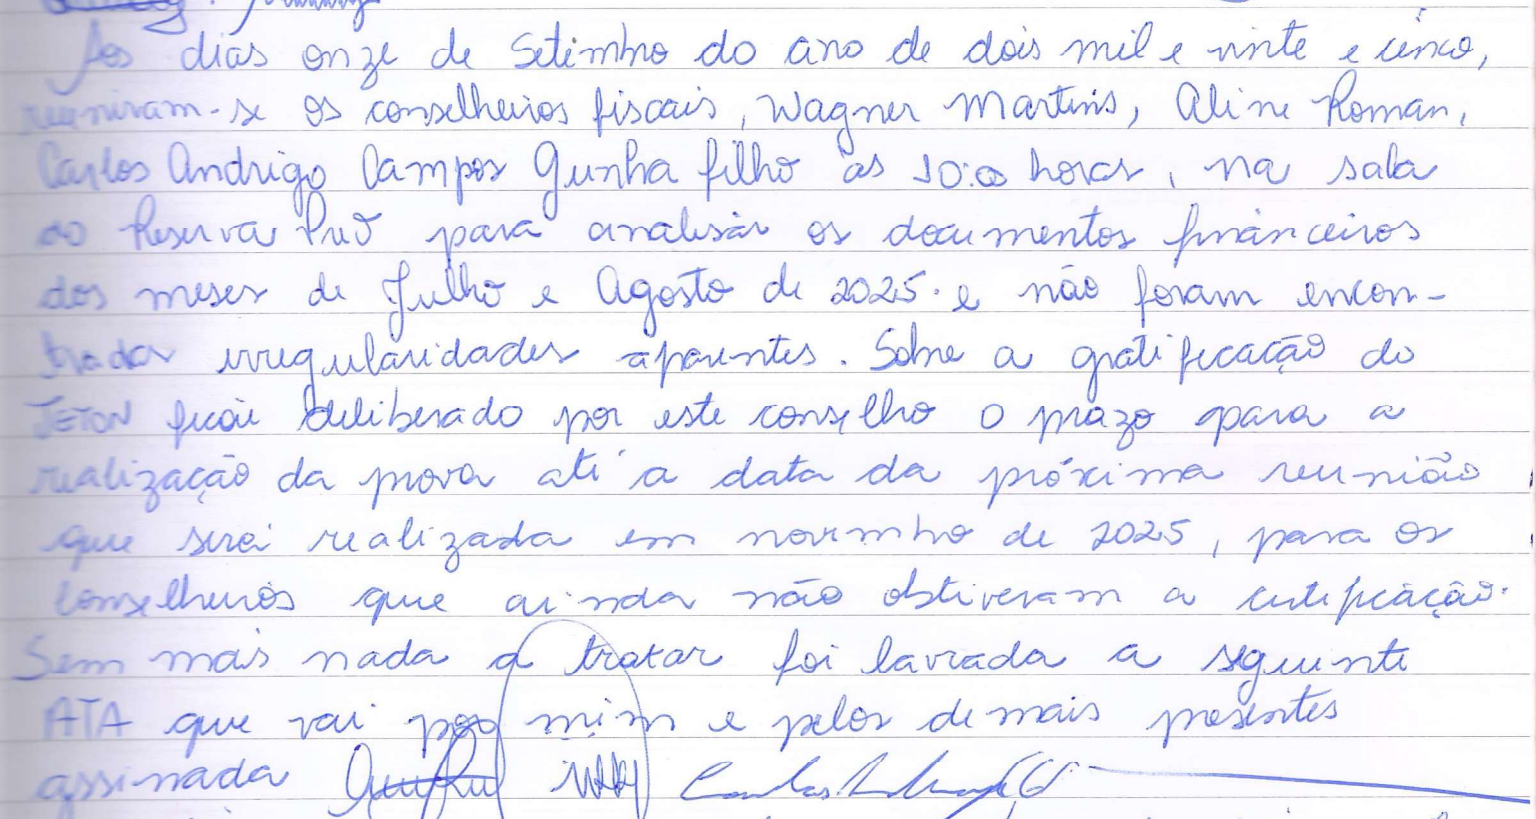 Aos dias onze de Setembro do ano de dois mil e vinte e cinco,
reuniram-se os conselheiros fiscais, Wagner Martins, Aline Roman,
Carlos Andrigo Campos Gunha filho às 10:00 horas, na sala
do Reserva Prev para analisar os documentos financeiros
dos meses de Julho e Agosto de 2025. e não foram encon-
tradas irregularidades aparentes. Sobre a gratificação do
JETON ficou deliberado por este conselho o prazo para a
realização da prova até a data da próxima reunião
que será realizada em novembro de 2025, para os
Conselheiros que ainda não obtiveram a certificação.
Sem mais nada a tratar foi lavrada a seguinte
ATA que vai por mim e pelos demais presentes
assinada